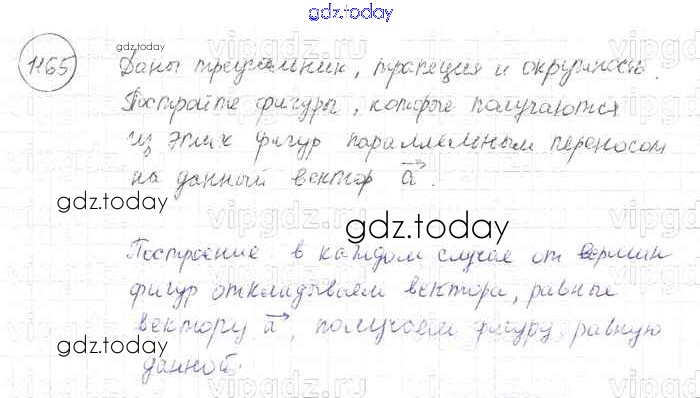 gdz.today
1165
gdz.today
Даны треугольник, трапеция и окружность.
Постройте фигуры, которые получаются
из этих фигур параллельным переносом
на данный вектор a.
gdz.today
gdz.today
Построение: в каждом случае от вершин
фигур откладываем вектора, равные
вектору a, получаем фигуру, равную
gdz.today
данной.